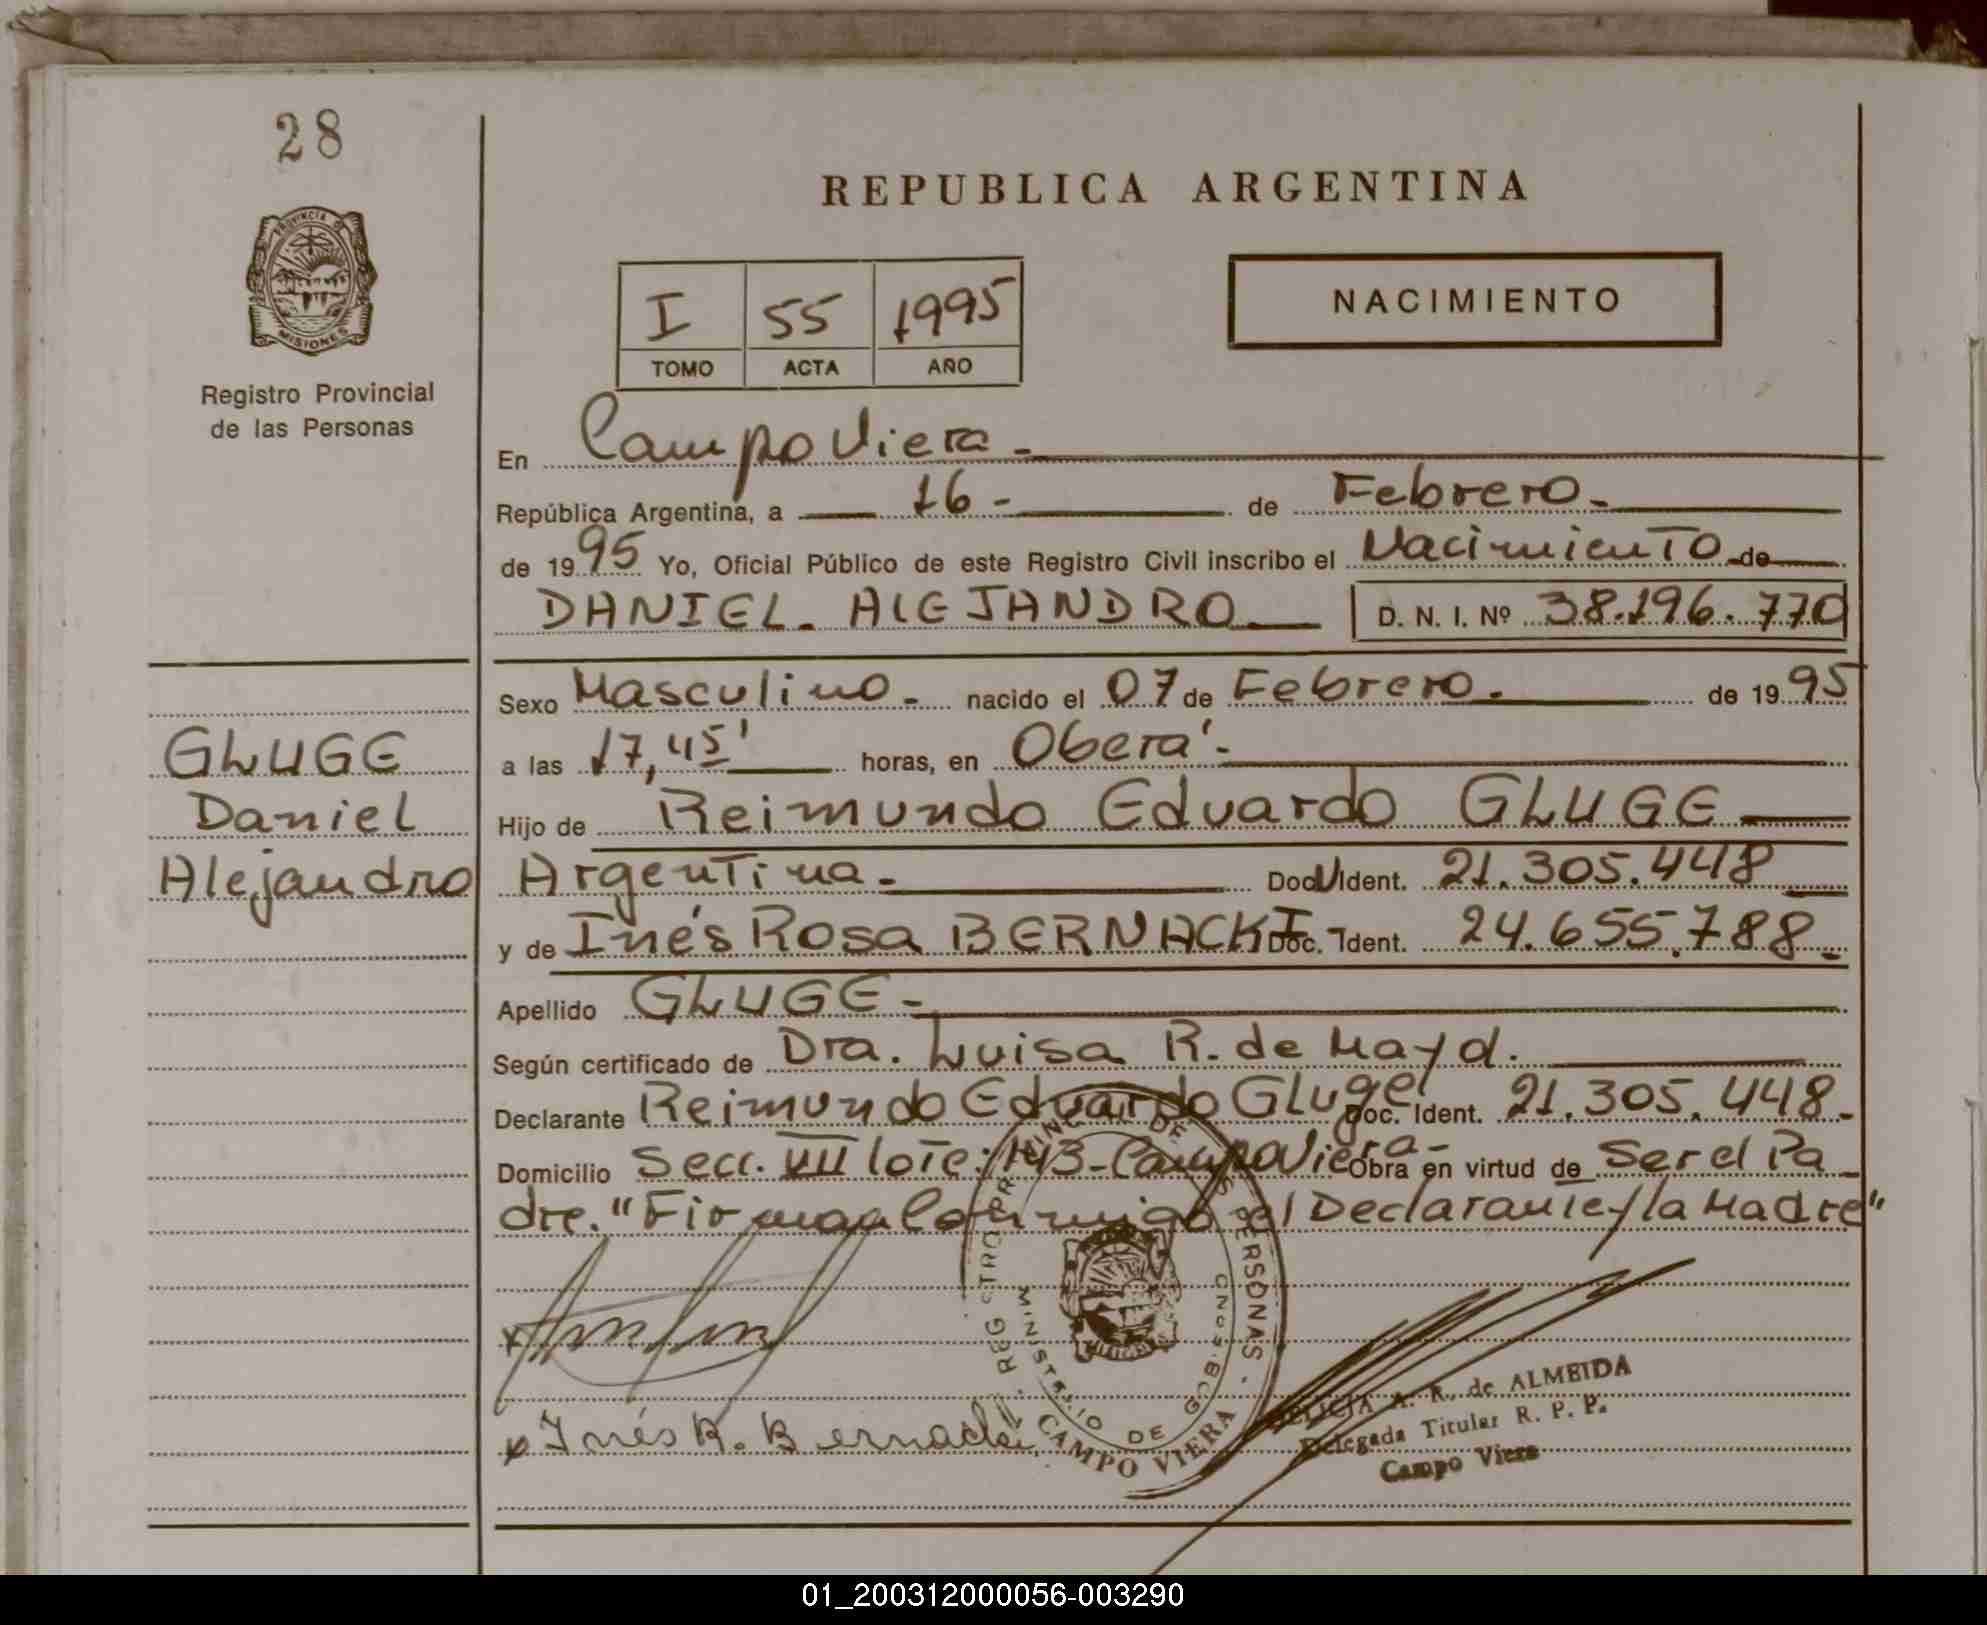 28
PROVINCIA D
MISIONES
Registro Provincial
de las Personas
GLUGE
Daniel
Alejandro
REPUBLICA ARGENTINA
I 55 1995
TOMO ACTA AÑO
NACIMIENTO
En Campo Viera -
República Argentina, a 16 - de Febrero -
de 1995 Yo, Oficial Público de este Registro Civil inscribo el Nacimiento de
DANIEL. ALEJANDRO D. N. I. Nº 38.196.770
Sexo Masculino - nacido el 07 de Febrero. de 1995
a las 17,45' horas, en Oberá -
Hijo de Reimundo Eduardo GLUGE
Argentina - Doc. Ident. 21.305.448
y de Inés Rosa BERNACKI Doc. Ident. 24.655.788 -
Apellido GLUGE -
Según certificado de Dra. Luisa R. de Mayd.
Declarante Reimundo Eduardo Gluge Doc. Ident. 21.305.448 -
Domicilio Secc. VII lote: 143 - Campo Viera - Obra en virtud de Ser el Pa
dre. "Firman Conmigo el Declarante y la Madre"
REGISTRO PROVINCIAL DE LAS PERSONAS
MINISTERIO DE GOBIERNO
CAMPO VIERA
x Inés R. B ernacki
A. R. de ALMEIDA
Delegada Titular R. P. P.
Campo Viera
01_200312000056-003290